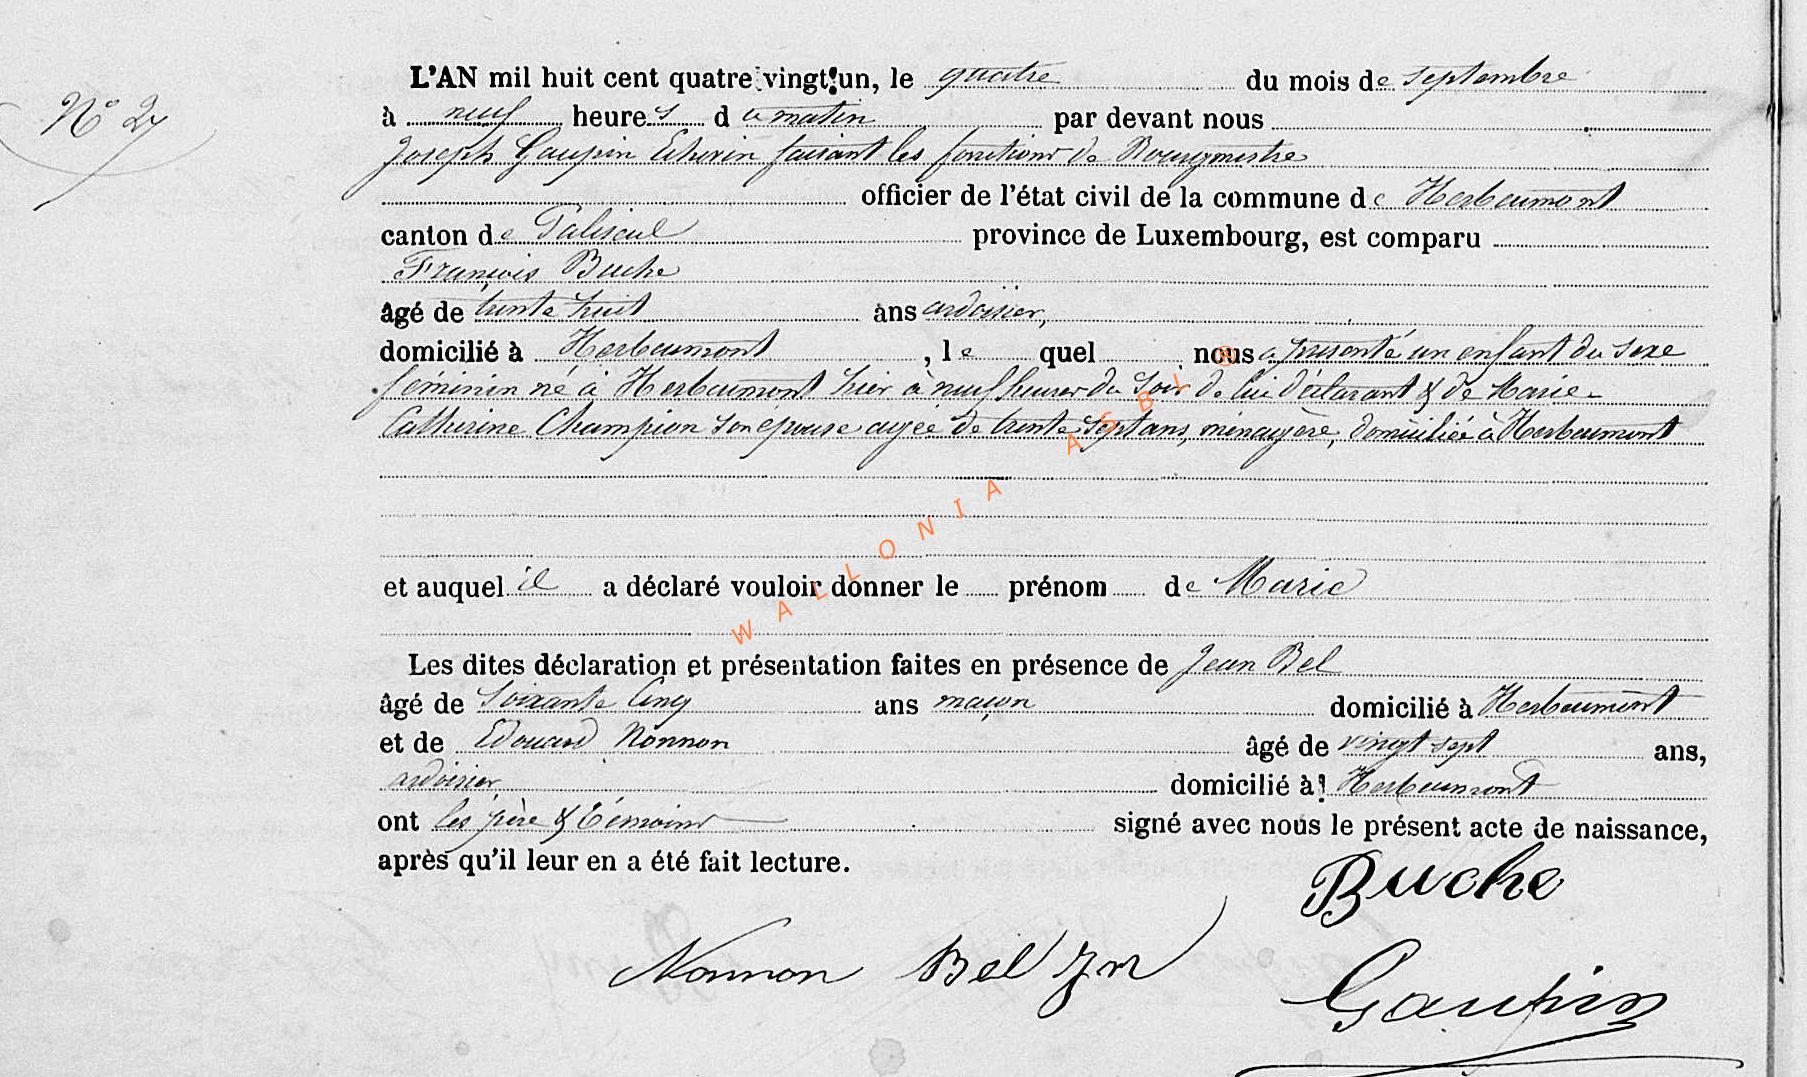 N° 27
L'AN mil huit cent quatre-vingt-un, le quatre du mois de septembre
à neuf heures du matin par devant nous
Joseph Gaupin Echevin faisant les fonctions de Bourgmestre
officier de l'état civil de la commune de Herbeumont
canton de Paliseul province de Luxembourg, est comparu
François Buche
âgé de trente huit ans ardoisier,
domicilié à Herbeumont, lequel nous a présenté un enfant du sexe
féminin né à Herbeumont hier à neuf heures du soir de lui déclarant & de Marie
Catherine Champion son épouse agée de trente sept ans, ménagère, domiciliée à Herbeumont
et auquel il a déclaré vouloir donner le prénom de Marie
Les dites déclaration et présentation faites en présence de Jean Bel
âgé de soixante cinq ans maçon domicilié à Herbeumont
et de Edouard Nonnon âgé de vingt sept ans,
ardoisier domicilié à Herbeumont
ont les père & témoins signé avec nous le présent acte de naissance,
après qu'il leur en a été fait lecture.
Buche
Nonnon Bel Jn
Gaupin
WALLONIA ASBL ®